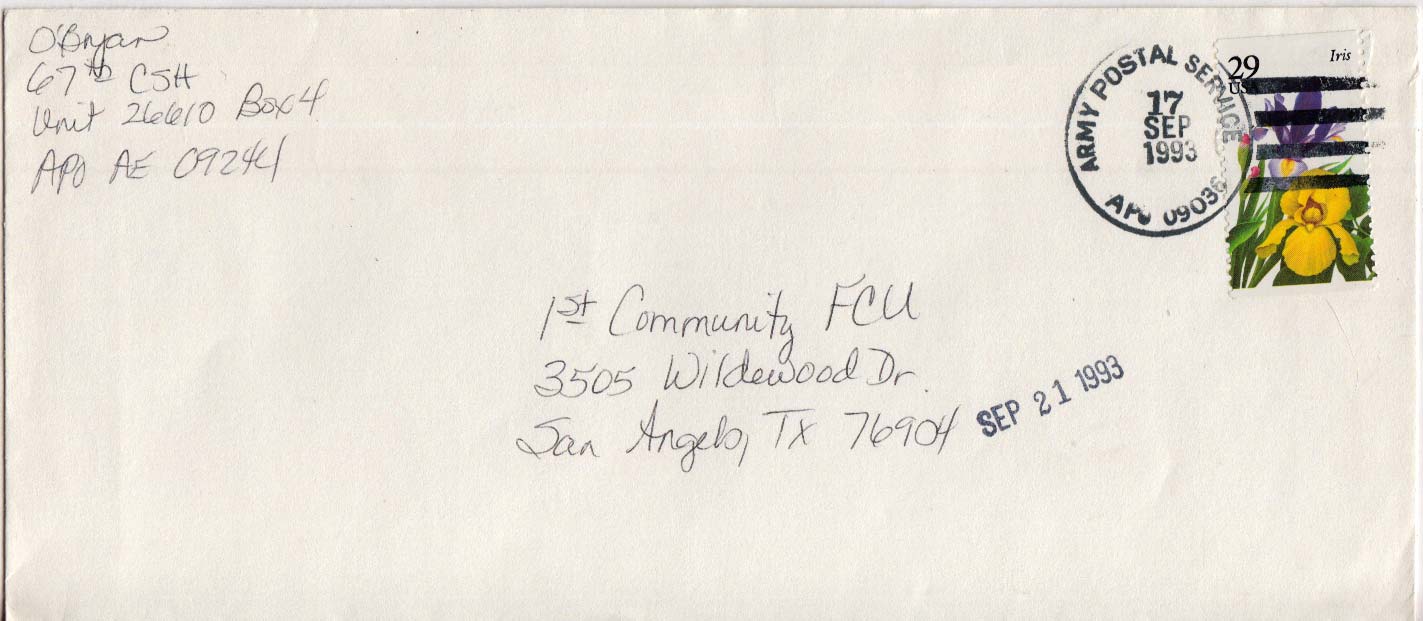 O'Bryan
67th CSH
Unit 26610 Box 4
APO AE 09244
ARMY POSTAL SERVICE
17
SEP
1993
APO 09036
29
USA
Iris
1st Community FCU
3505 Wildewood Dr.
San Angelo, TX 76904
SEP 21 1993